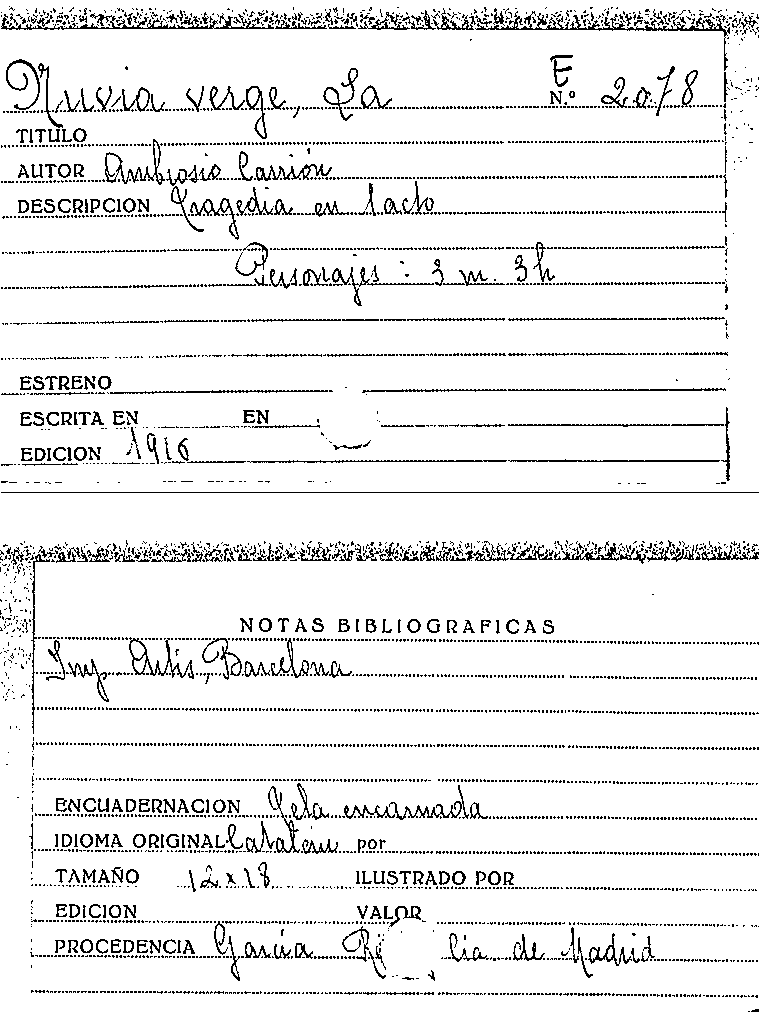 Nuvia verge, La E
N.º 2078
TITULO
AUTOR Ambrosio Carrión
DESCRIPCION Tragedia en 1 acto
Personajes : 3 m. 3h
ESTRENO
ESCRITA EN EN
EDICION 1916
NOTAS BIBLIOGRAFICAS
Imp. Artis, Barcelona
ENCUADERNACION Tela encarnada
IDIOMA ORIGINAL Catalán por
TAMAÑO 12 x 18 ILUSTRADO POR
EDICION VALOR
PROCEDENCIA García cia de Madrid